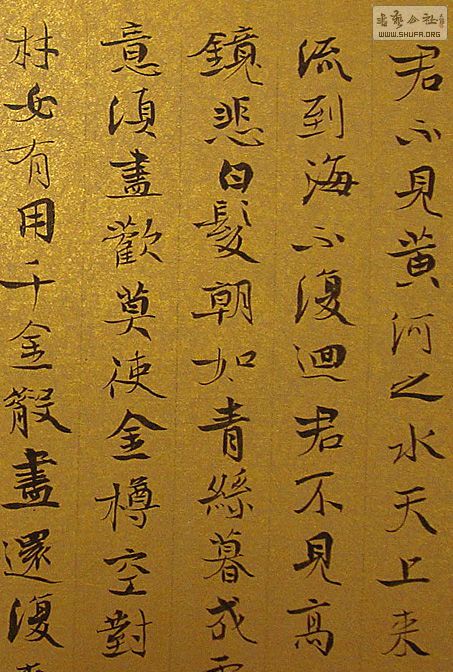 君不見黄河之水天上来
流到海不復迴君不見高
鏡悲白髮朝如青絲暮成
意須盡歡莫使金樽空對
材必有用千金散盡還復
書藝公社
WWW.SHUFA.ORG